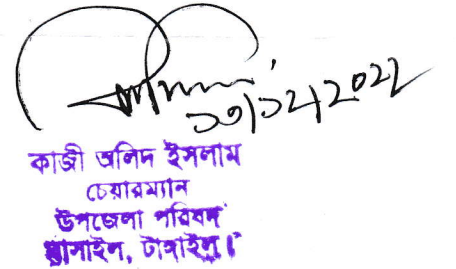 ১৩/১২/2022
কাজী অলিদ ইসলাম
চেয়ারম্যান
উপজেলা পরিষদ
বাসাইল, টাঙ্গাইল।